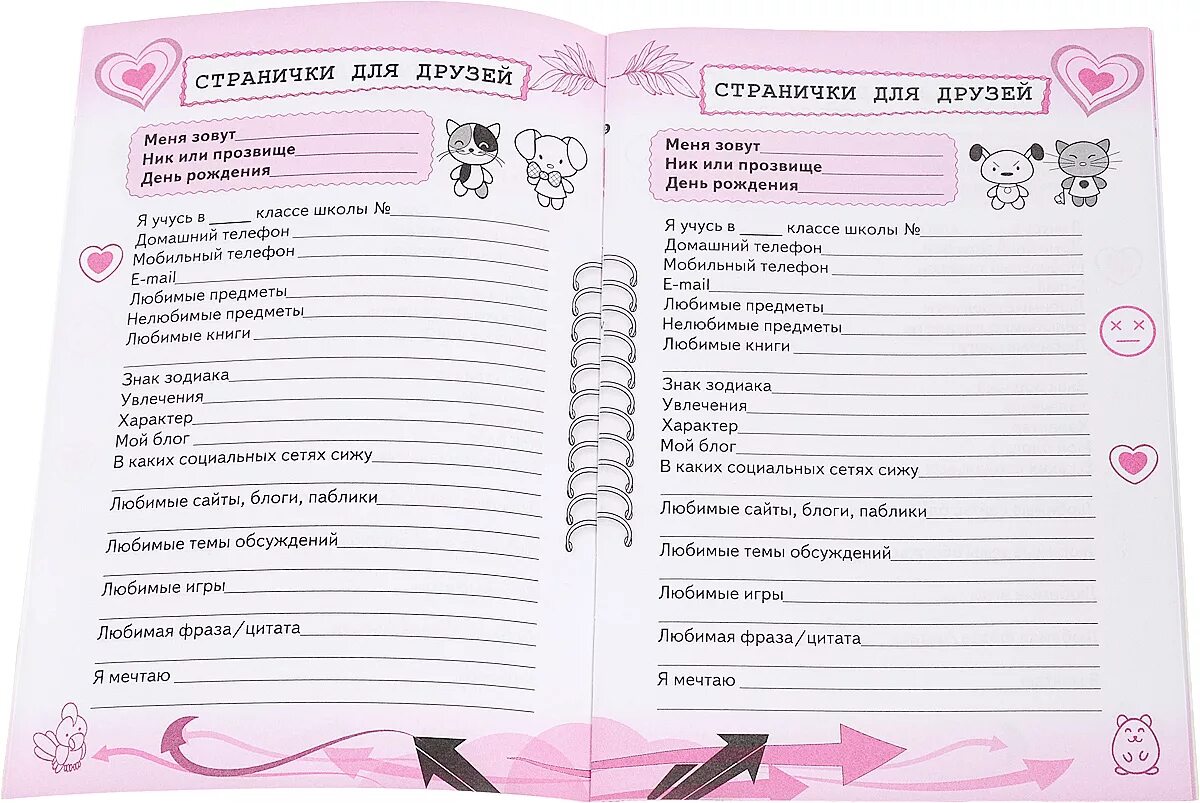 СТРАНИЧКИ ДЛЯ ДРУЗЕЙ
Меня зовут
Ник или прозвище
День рождения
Я учусь в _____ классе школы №
Домашний телефон
Мобильный телефон
E-mail
Любимые предметы
Нелюбимые предметы
Любимые книги
Знак зодиака
Увлечения
Характер
Мой блог
В каких социальных сетях сижу
Любимые сайты, блоги, паблики
Любимые темы обсуждений
Любимые игры
Любимая фраза/цитата
Я мечтаю
СТРАНИЧКИ ДЛЯ ДРУЗЕЙ
Меня зовут
Ник или прозвище
День рождения
Я учусь в _____ классе школы №
Домашний телефон
Мобильный телефон
E-mail
Любимые предметы
Нелюбимые предметы
Любимые книги
Знак зодиака
Увлечения
Характер
Мой блог
В каких социальных сетях сижу
Любимые сайты, блоги, паблики
Любимые темы обсуждений
Любимые игры
Любимая фраза/цитата
Я мечтаю